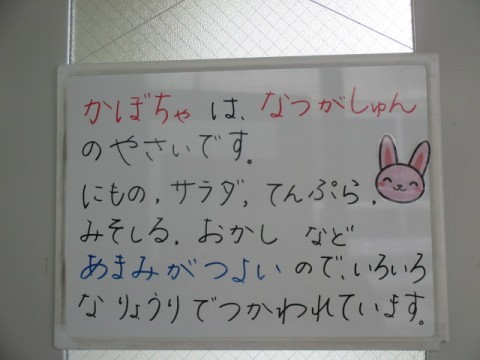 かぼちゃ は、なつがしゅん
のやさいです。
にもの, サラダ, てんぷら,
みそしる, おかし など
あまみがつよい ので、いろいろ
な りょうり でつかわれています。